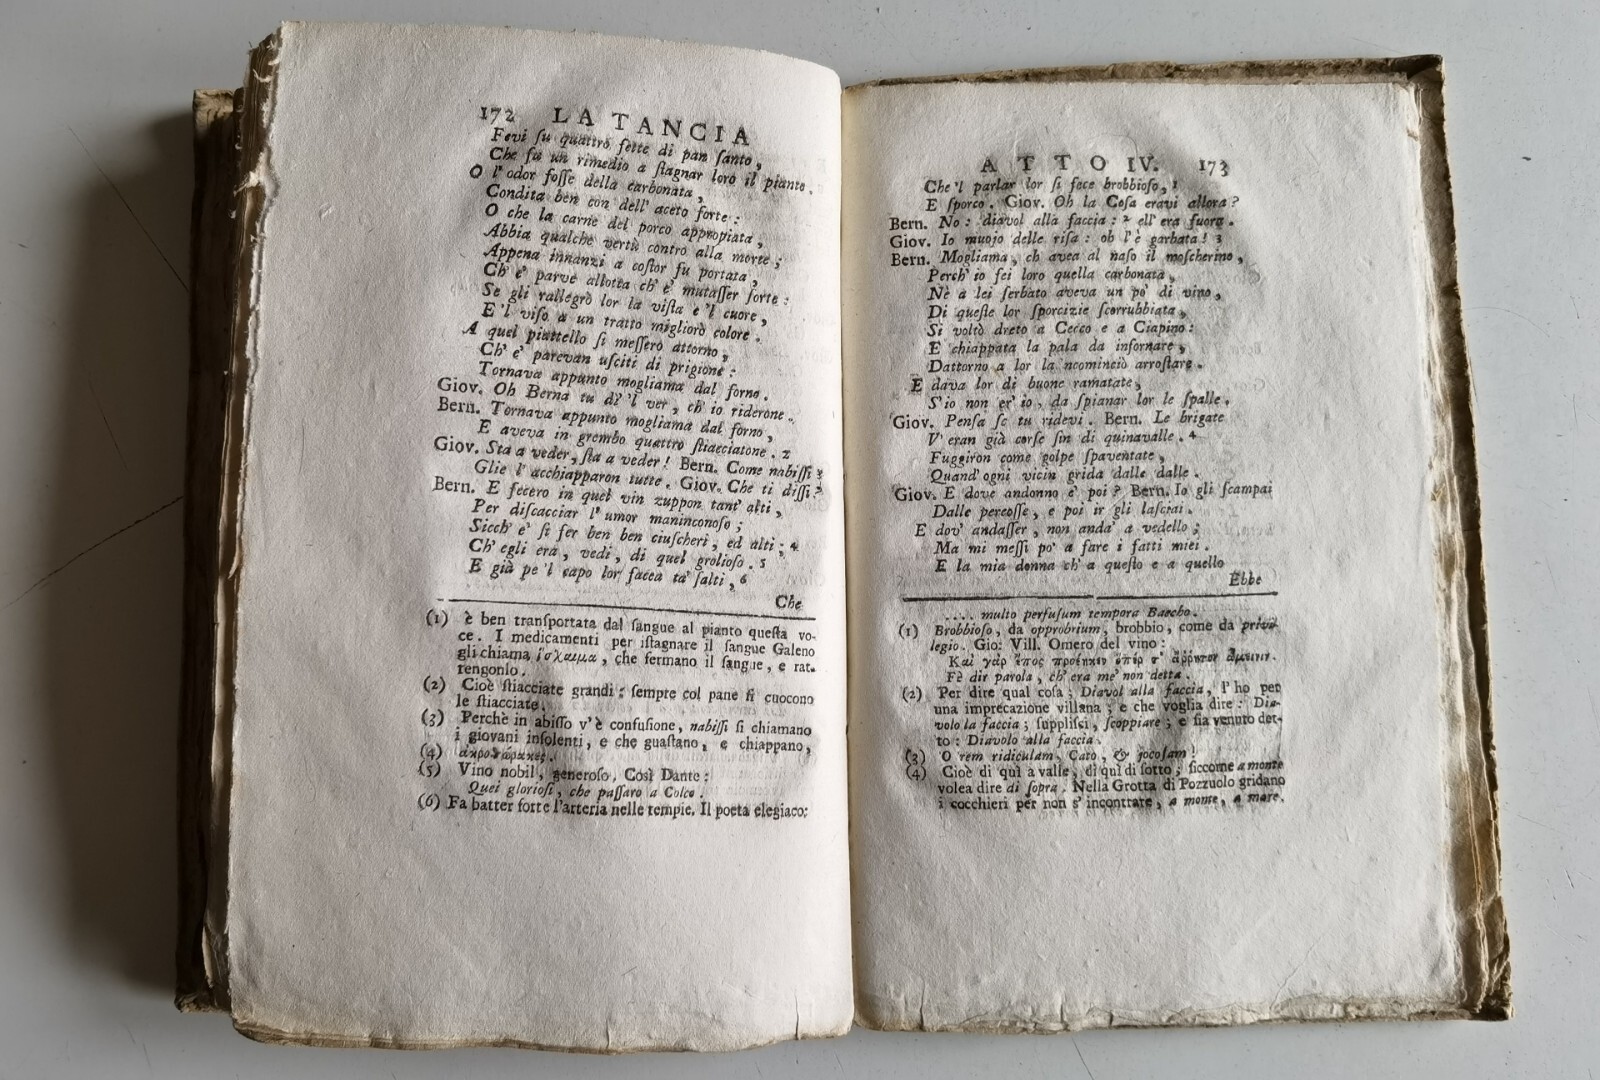 172 LA TANCIA
Fevi ſu quattro fette di pan ſanto,
Che fu un rimedio a ſtagnar loro il pianto.
O l'odor foſſe della carbonata,
Condita ben con dell' aceto forte:
O che la carne del porco appropiata,
Abbia qualche vertù contro alla morte;
Appena innanzi a coſtor fu portata,
Ch' e' parve allotta ch' e' mutaſſer ſorte:
Se gli rallegrò lor la viſta e 'l cuore,
E 'l viſo a un tratto migliorò colore.
A quel piattello ſi meſſero attorno,
Ch' e' parevan uſciti di prigione:
Tornava appunto mogliama dal forno.
Giov. Oh Berna tu di' 'l ver, ch' io riderone.
Bern. Tornava appunto mogliama dal forno,
E aveva in grembo quattro ſtiacciatone. 2
Giov. Sta a veder, ſta a veder! Bern. Come nabiſſi 3
Glie l' acchiapparon tutte. Giov. Che ti diſſi?
Bern. E fecero in quel vin zuppon tant' alti,
Per diſcacciar l' umor maninconoſo;
Sicch' e' ſi fer ben ben ciuſcheri, ed alti; 4
Ch' egli era, vedi, di quel groliofo. 5
E già pe 'l capo lor facea ta' ſalti, 6
Che
(1) è ben traſportata dal ſangue al pianto queſta vo-
ce. I medicamenti per iſtagnare il ſangue Galeno
gli chiama ἴσχαιμα, che fermano il ſangue, e rat-
tengonlo.
(2) Cioè ſtiacciate grandi: ſempre col pane ſi cuocono
le ſtiacciate.
(3) Perchè in abiſſo v'è confuſione, nabiſſi ſi chiamano
i giovani inſolenti, e che guaſtano, e chiappano,
(4)
(5) Vino nobil, generoſo, Così Dante:
Quei glorioſi, che paſſaro a Colco.
(6) Fa batter forte l'arteria nelle tempie. Il poeta elegiaco:
ATTO IV. 173
Che 'l parlar lor ſi fece brobbioſo, 1
E ſporco. Giov. Oh la Coſa eravi allora?
Bern. No: diavol alla faccia: 2 ell' era fuora.
Giov. Io muojo delle riſa: oh l'è garbata! 3
Bern. Mogliama, ch avea al naſo il moſcherino,
Perch' io fei loro quella carbonata,
Nè a lei ſerbato aveva un po' di vino,
Di queſte lor ſporcizie ſcorrubbiata,
Si voltò dreto a Cecco e a Ciapino:
E chiappata la pala da infornare,
Dattorno a lor la ncominciò arroſtare.
E dava lor di buone ramatate,
S' io non er' io, da ſpianar lor le ſpalle.
Giov. Penſa ſe tu ridevi. Bern. Le brigate
V' eran già corſe fin di quinavalle. 4
Fuggiron come golpe ſpaventate,
Quand' ogni vicin grida dalle dalle.
Giov. E dove andonno e' poi? Bern. Io gli ſcampai
Dalle percoſſe, e poi ir gli laſciai.
E dov' andaſſer, non anda' a vedello;
Ma mi meſſi po' a fare i fatti miei.
E la mia donna ch' a queſto e a quello
Ebbe
.... multo perfuſum tempora Baccho.
(1) Brobbioſo, da opprobrium, brobbio, come da privi-
legio. Gio: Vill. Omero del vino:
Καὶ γάρ ἔπος προέηκεν ὅπερ τ' ἄῤῥητον ἄμεινον.
Fè dir parola, ch' era me' non detta.
(2) Per dire qual coſa; Diavol alla faccia, l' ho per
una imprecazione villana; e che voglia dire: Dia-
volo la faccia; ſuppliſci, ſcoppiare; e ſia venuto det-
to: Diavolo alla faccia.
(3) O rem ridiculam, Cato, & jocoſam!
(4) Cioè di quì a valle, di quì di ſotto; ſiccome a monte
volea dire di ſopra. Nella Grotta di Pozzuolo gridano
i cocchieri per non s' incontrare, a monte, a mare.